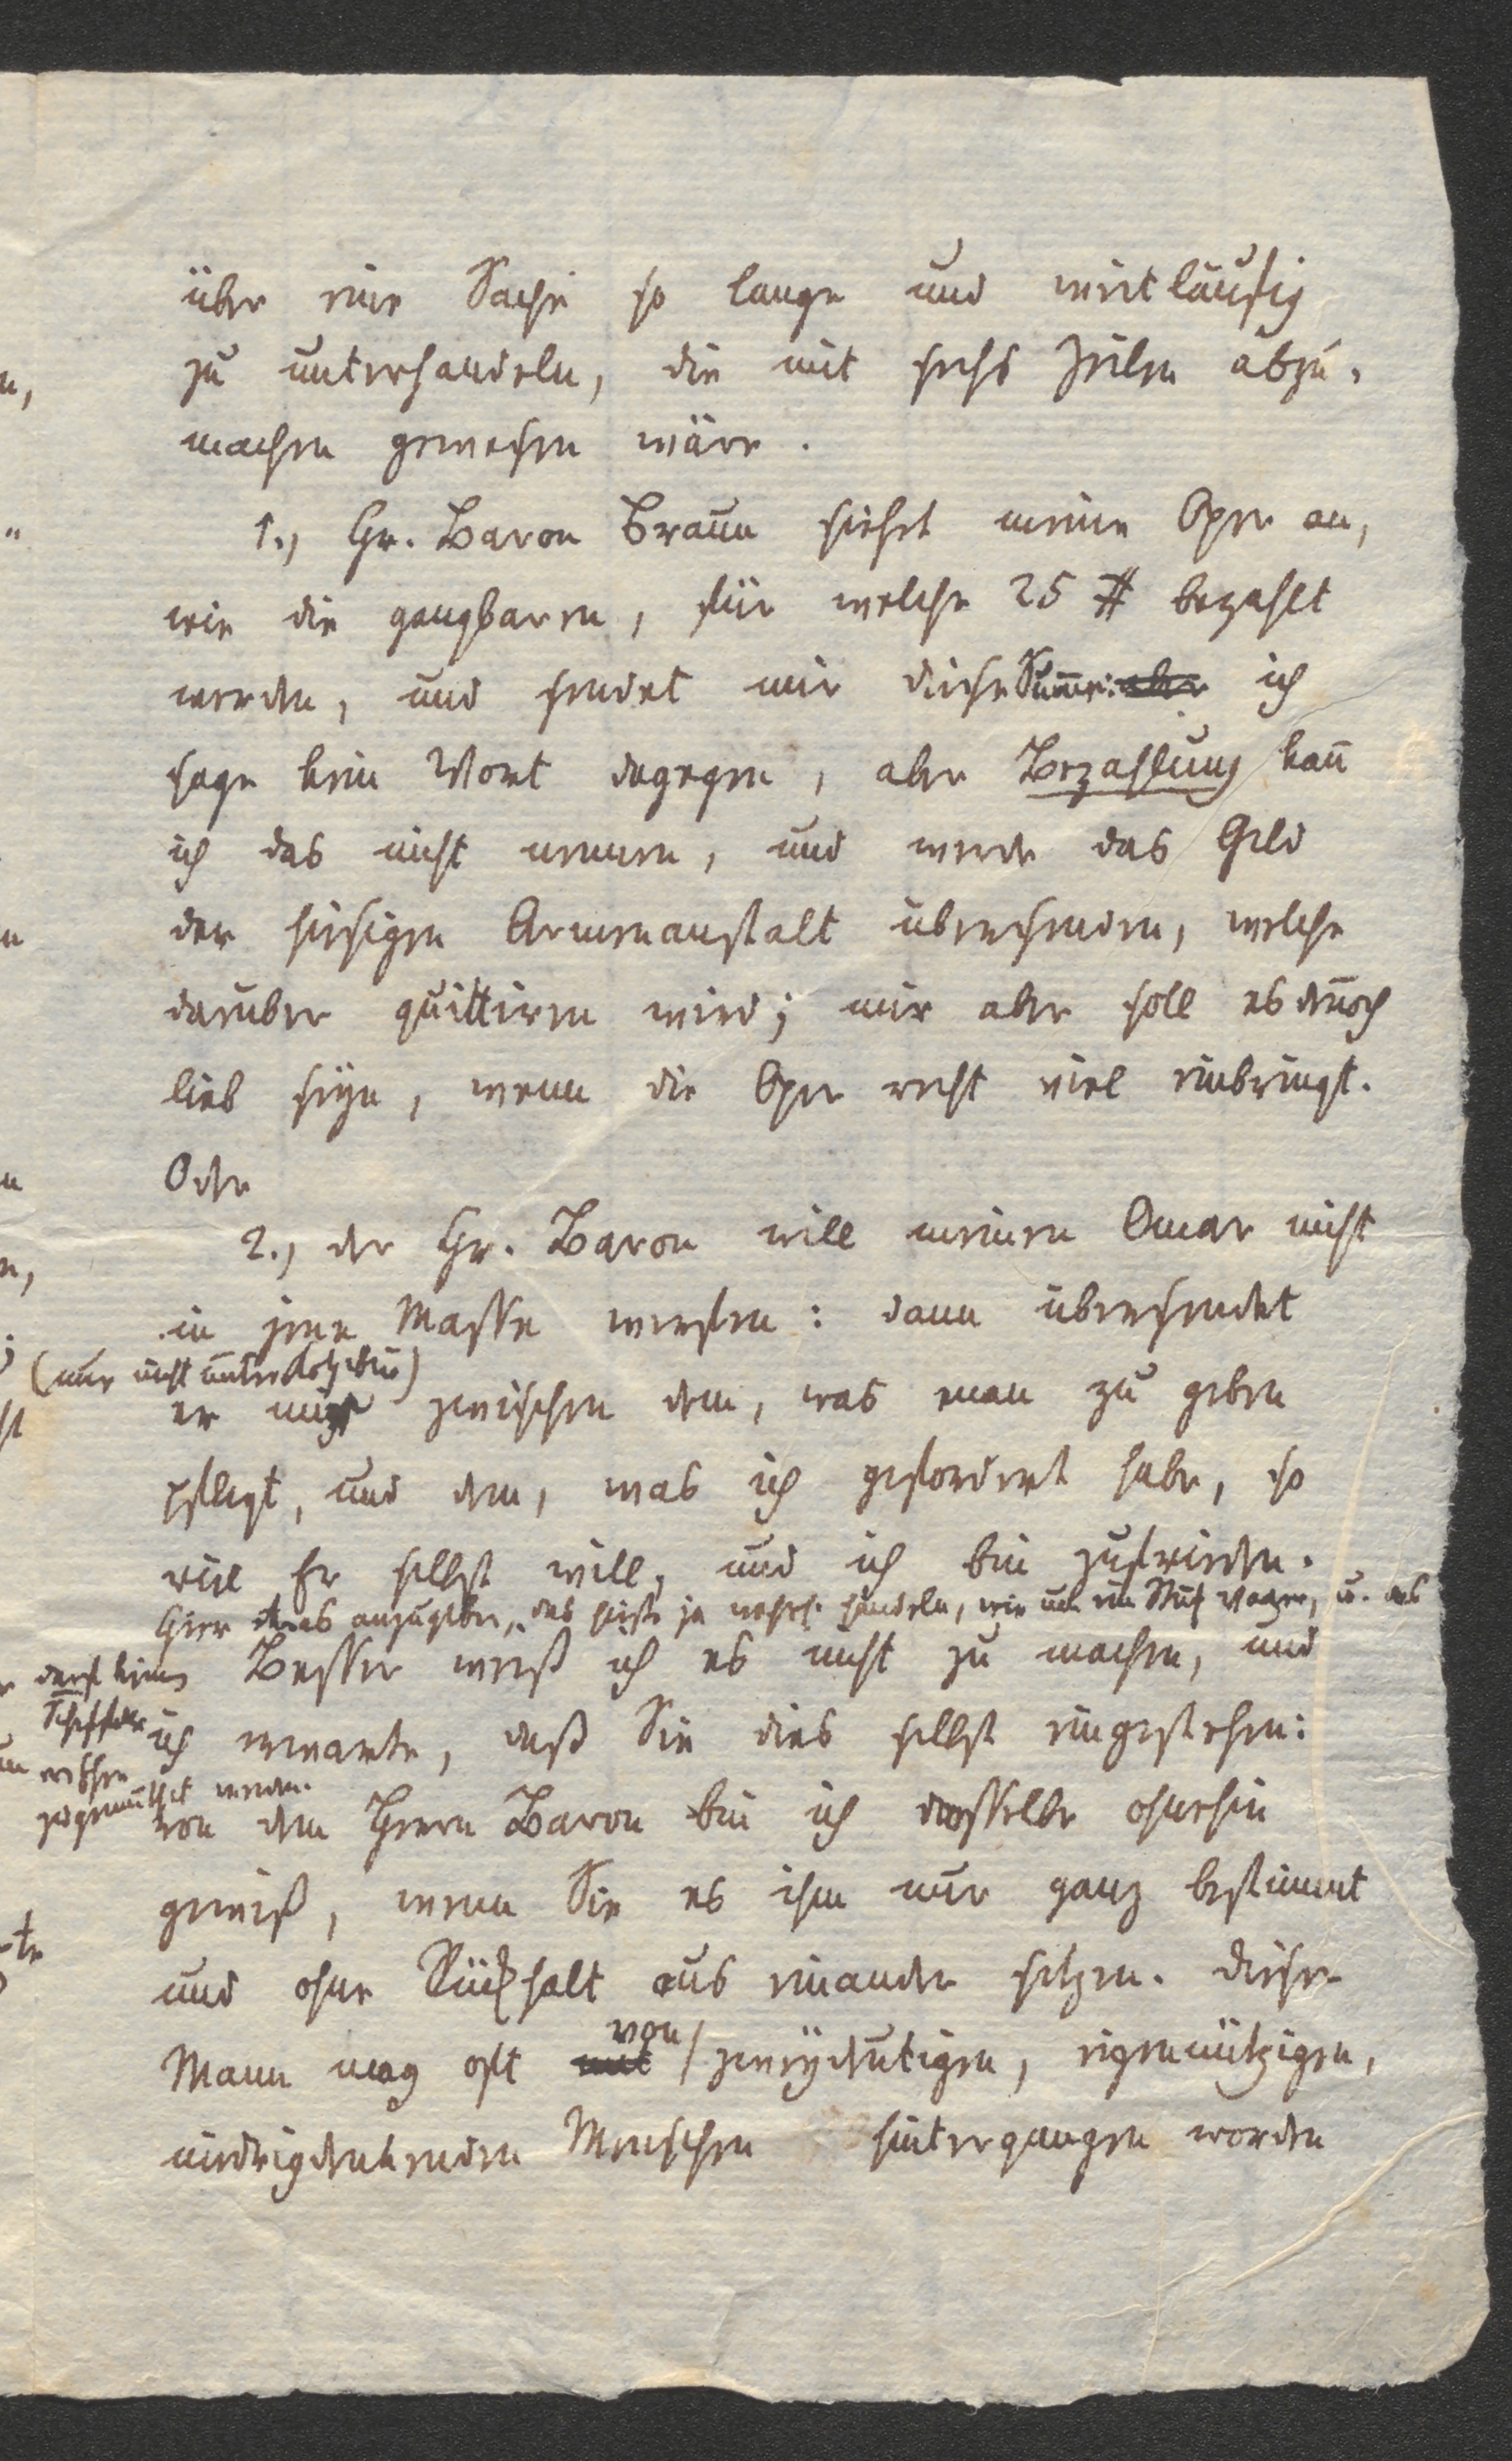 über eine Sache so lange und weitläufig
zu unterhandeln, die mit sechs Zeilen abzu,
machen gewesen wäre.
1., Hr. Baron Braun siehet meine Oper an,
wie die gangbaren, für welche 25 # bezahlt
werden, und sendet mir diese Summe: aber ich
sage kein Wort dagegen, aber Bezahlung kan̄
ich das nicht nennen, und werde das Geld
der hiesigen Armenanstalt übersenden, welche
darüber quittiren wird; mir aber soll es den̄och
lieb seyn, wenn die Oper recht viel einbringt.
Oder
2., der Hr. Baron will meinen Omar nicht
in jene Masse werfen: dann übersendet
(nur nicht unter
er mir zwischen dem, was man zu geben
pflegt, und dem, was ich gefordert habe, so
viel Er selbst will, und ich bin zufrieden.
Hier etwas anzugeben, das hieße ja handeln, wie um ein Stück Waare, u. das
darf keinem Besser weiß ich es nicht zu machen, und
ich erwarte, daß Sie dies selbst eingestehen:
zugemuthet werden.
von dem Herrn Baron bin ich dasselbe ohnehin
gewiß, wenn Sie es ihm nur ganz bestimmt
und ohne Rückhalt aus einander setzen. Dieser
von
Mann mag oft mit zweydeutigen, eigennützigen,
niedrigdenkenden Menschen hintergangen worden